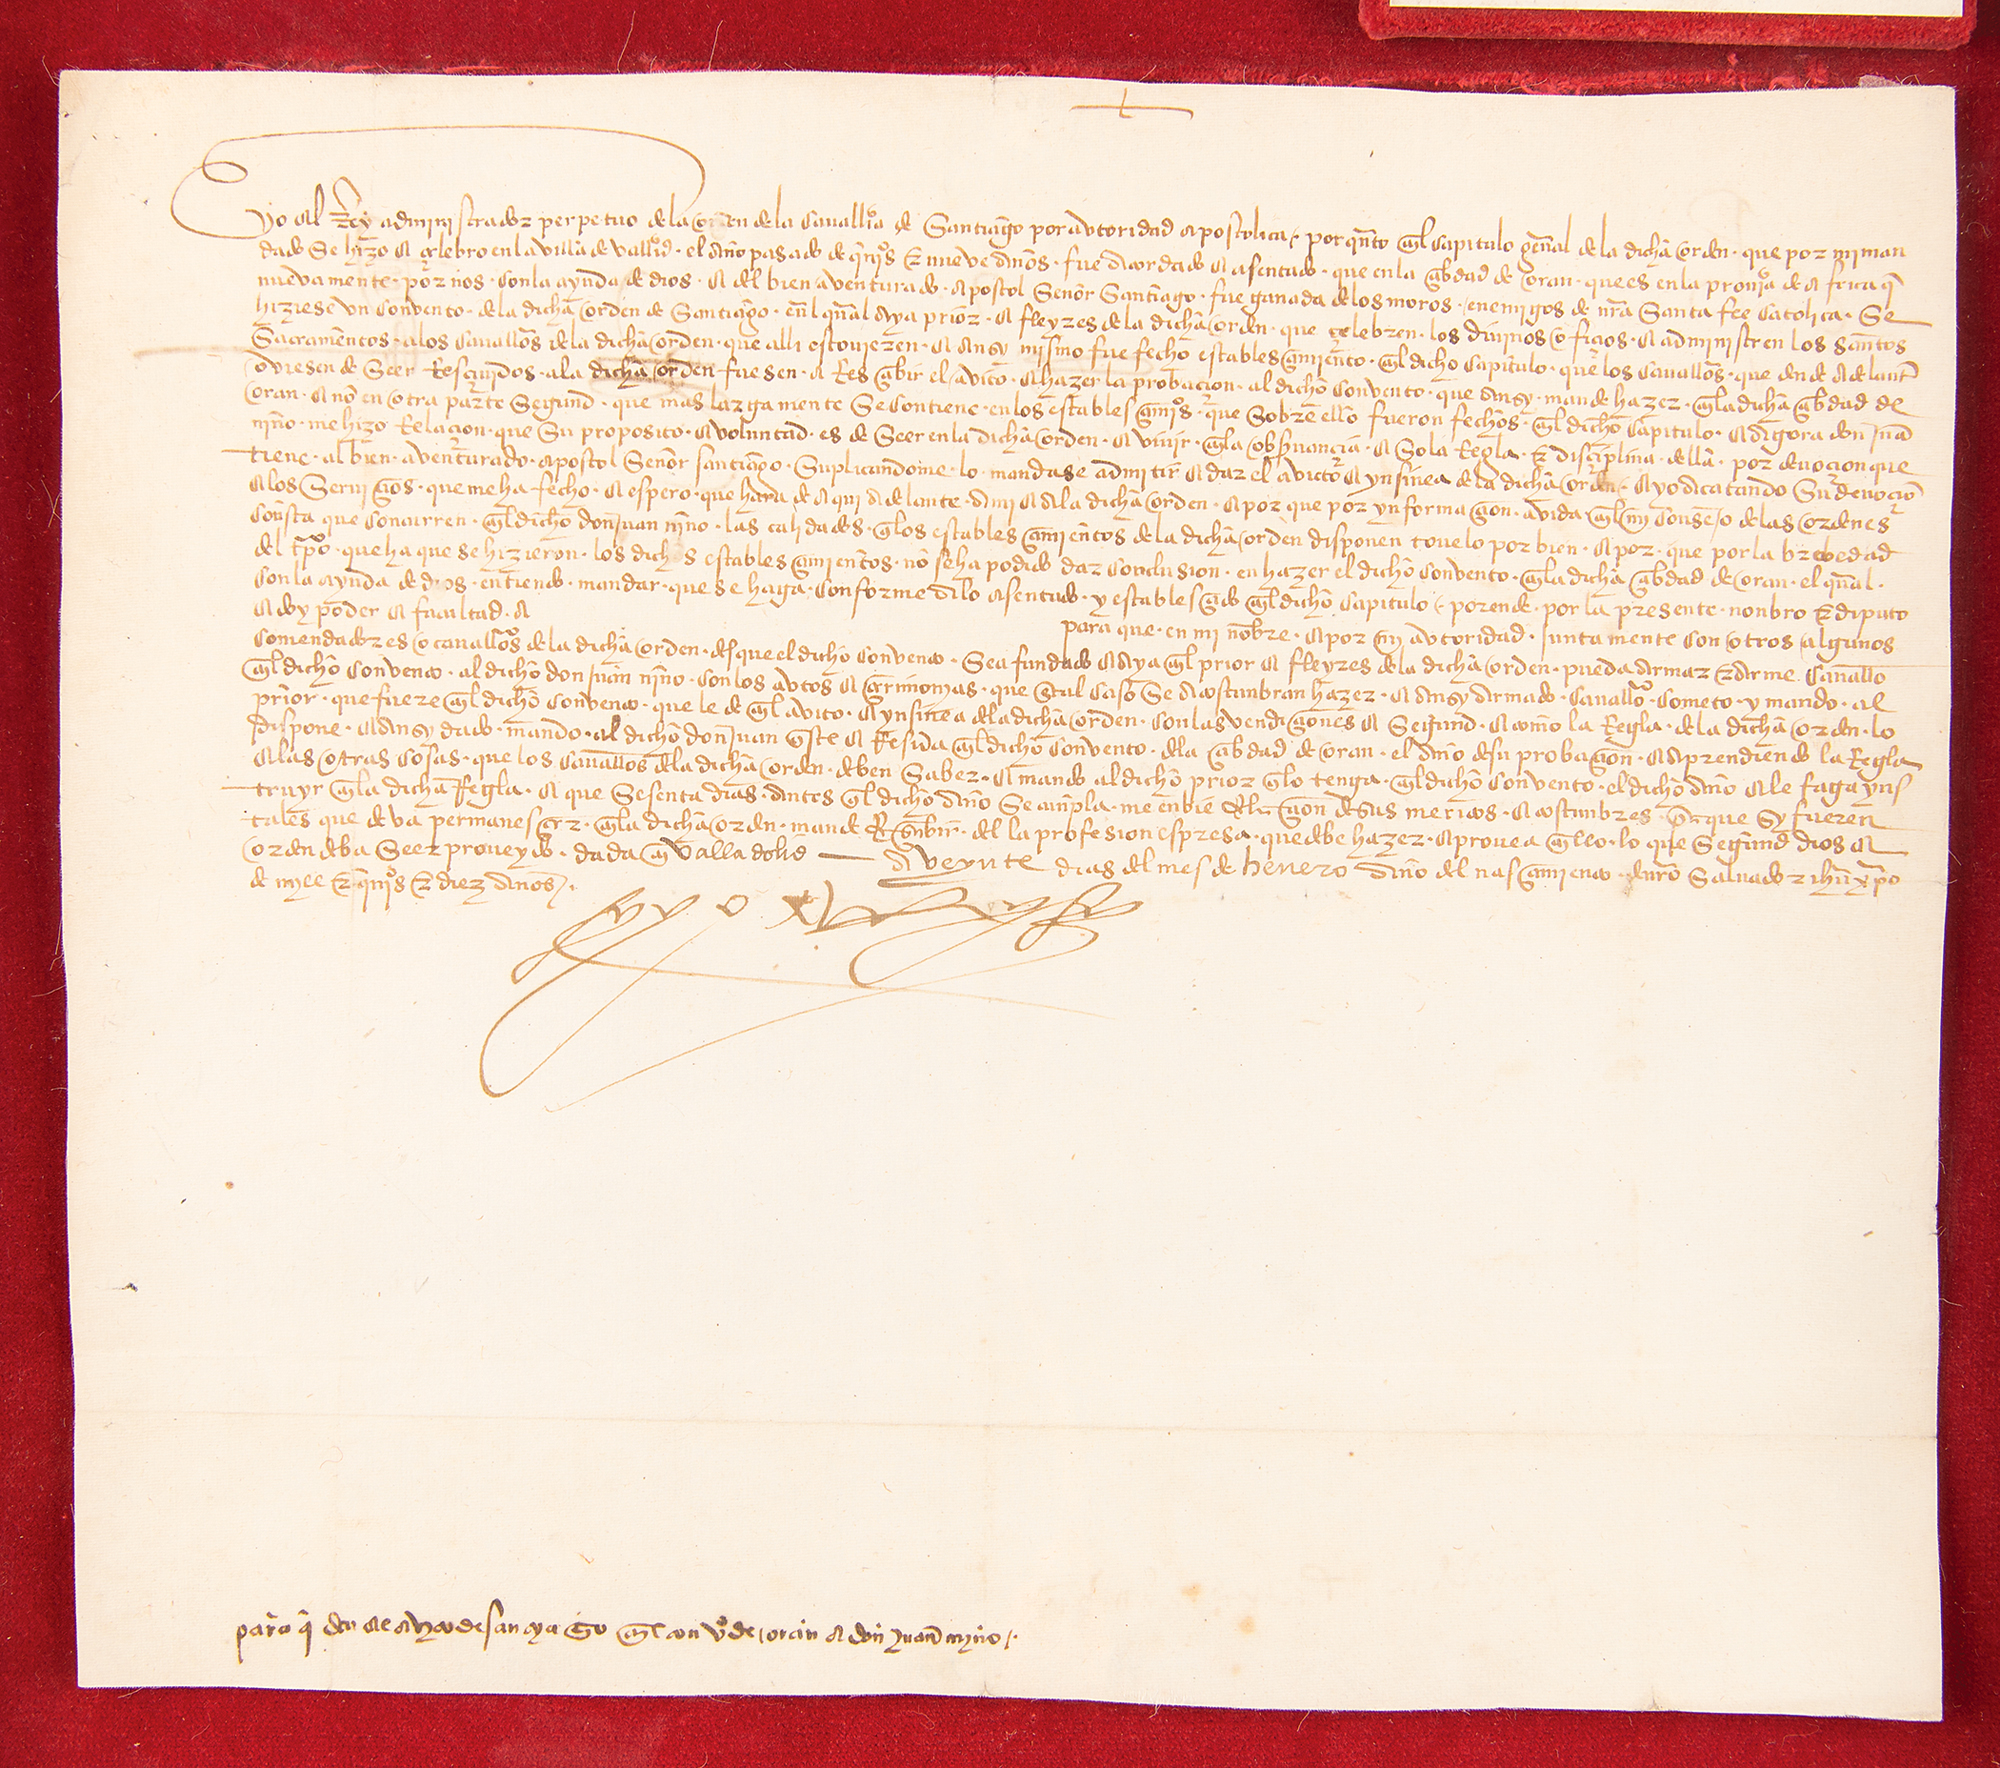 Yo el Rey administrador perpetuo de la orden de la cavallia de Santiago por abtoridad apostolica. por qnto en el capitulo genal de la dicha orden. que por mi man
dado se hizo e celebro en la villa de vallid. el año pasado de qios e nueve años. fue acordado e asentado. que en la cibdad de oran. que es en la provia de africa q
nuevamente. por nos. con la ayuda de dios. e del bien aventurado. apostol Señor Santiago. fue ganada de los moros. enemigos de nra Santa fee catolica. Se
hiziese un convento. de la dicha orden de Santiago. en el qual aya prior. e freyres de la dicha orden. que celebren. los divinos oficios. e administren los santos
Sacramentos. a los cavallos de la dicha orden. que alli estovieren. e ansy mismo fue fecho establescimiento. en el dicho capitulo. que los cavallos. que dende adelante
oviesen de Seer Rescividos. a la dicha orden fuesen. a Rescebir el avito. e hazer la probacion. al dicho convento. que ansy. mande hazer. en la dicha cibdad de
oran. e no en otra parte Segund. que mas largamente Se contiene. en los establescimios. que Sobre ello fueron fechos. en el dicho capitulo. e agora don Jua
niño. me hizo Relacion. que Su proposito. e voluntad. es de Seer en la dicha orden. e vivir. en la observancia. e So la Regla. e disciplina. della. por devocion que
tiene. al bien. aventurado. apostol Señor santiago. Suplicandome. lo mandase admitir e dar el avito e ynsinea de la dicha orden. e yo acatando Su devocio
e los Servicios. que me ha fecho. e espero. que hara de aqui adelante. a mi e a la dicha orden. e por que por ynformacion. avida. en el mi consejo de las ordenes
consta que concurren. en el dicho don juan niño. las calidades. q los establescimientos de la dicha orden disponen tovelo por bien. e por. que por la brevedad
del tpo. que ha que se hizieron. los dichos establescimientos. no se ha podido dar conclusion. en hazer el dicho convento. en la dicha cibdad de oran. el qual.
con la ayuda de dios. entiendo. mandar. que se haga. conforme a lo asentado. y establescido en el dicho capitulo. por ende. por la presente. nonbro e diputo
e doy poder e facultad. a para que. en mi nonbre. e por mi autoridad. juntamente con otros algunos
comendadores o cavallos de la dicha orden. desque el dicho convento. Sea fundado e aya en el prior e freyres de la dicha orden. pueda armar e arme. cavallo
en el dicho convento. al dicho don juan niño. con los autos e cerimonias. que en tal caso Se acostunbran hazer. e ansy armado. cavallo. cometo. y mando. al
prior. que fuere en el dicho convento. que le de el avito. e ynsinea de la dicha orden. con las vendiciones e Segund. e como la Regla. de la dicha orden. lo
dispone. e ansy dado. mando. al dicho don juan q este e Resida en el dicho convento. de la cibdad de oran. el año de su probacion. e aprendiendo la Regla
e las otras cosas. que los cavallos de la dicha orden. deben Saber. e mando al dicho prior q lo tenga. en el dicho convento. el dicho año e le faga yns
truyr en la dicha Regla. e que Sesenta dias. antes q el dicho año Se cunpla. me enbie Relacion de sus meritos. e costunbres. para que Sy fueren
tales que deva permanescer. en la dicha orden. mande Rescibir. del la profesion espresa. que debe hazer. e provea en ello. lo que Segund dios e
orden deba Seer proveydo. dada en Valladolid a veynte dias del mes de henero año del nascimiento. de nro Salvador ihu xpo
de mill e qios e diez años.
yo el Rey
para q den el avito de santyago en el convo de oran a don juan nyño.